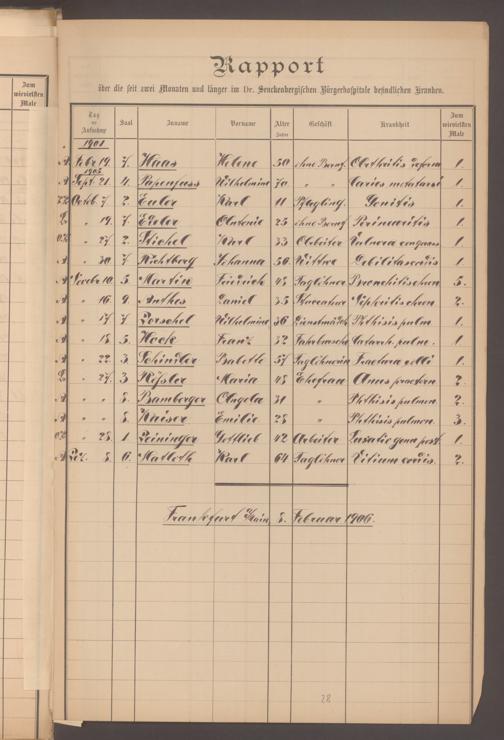 Zum
wievielsten
Male
Rapport
über die seit zwei Monaten und länger im Dr. Senckenbergischen Bürgerhospitale befindlichen Kranken.
Tag der Aufnahme Saal Zuname Vorname Alter Jahre Geschäft Krankheit Zum wievielsten Male
1901
A Febr 19. 7. Haas Helene 50 ohne Beruf. Arthritis deform 1.
1905
A Sept. 21 4. Papenfuss Wilhelmine 70 " " Caries metatarsi 1.
Octob. 7. 2. Euler Karl 11 Gonitis 1.
" 19 7. Antonie 25 ohne Beruf. Perimetritis 1.
" 27. 2. Karl 33 Arbeiter Vulnera 1.
A " 30 7. Richtberg Johanna 50. Debilitas cordis 1.
A Novbr 10. 5. Martin Friedrich 48 Taglöhner Bronchitis chron 5.
A " 16 9 Anthes Daniel 35 2.
A " 17 7. Porschel Wilhelmine 36 Dienstmädch Phthisis pulm. 1.
A " 18 5. Hock Franz 32 Catarrh. pulm. 1.
A " 22 3 Schindler Babette 57 Taglöhnerin Fractura colli 1.
" 27. 3 Kissler Maria 48 Ehefrau Anus praetern 2.
A " " 8. Bamberger Angela 31 " Phthisis pulmon 2.
A " " 8. Kaiser Emilie 28 " Phthisis pulmon. 3.
" 28. 1 Leininger Gottlieb 42 Arbeiter Luxatio genu post. 1.
A Dez. 8. 6. Karl 64 Taglöhner Vitium cordis. 2.
Frankfurt Main, 8. Februar 1906.
28